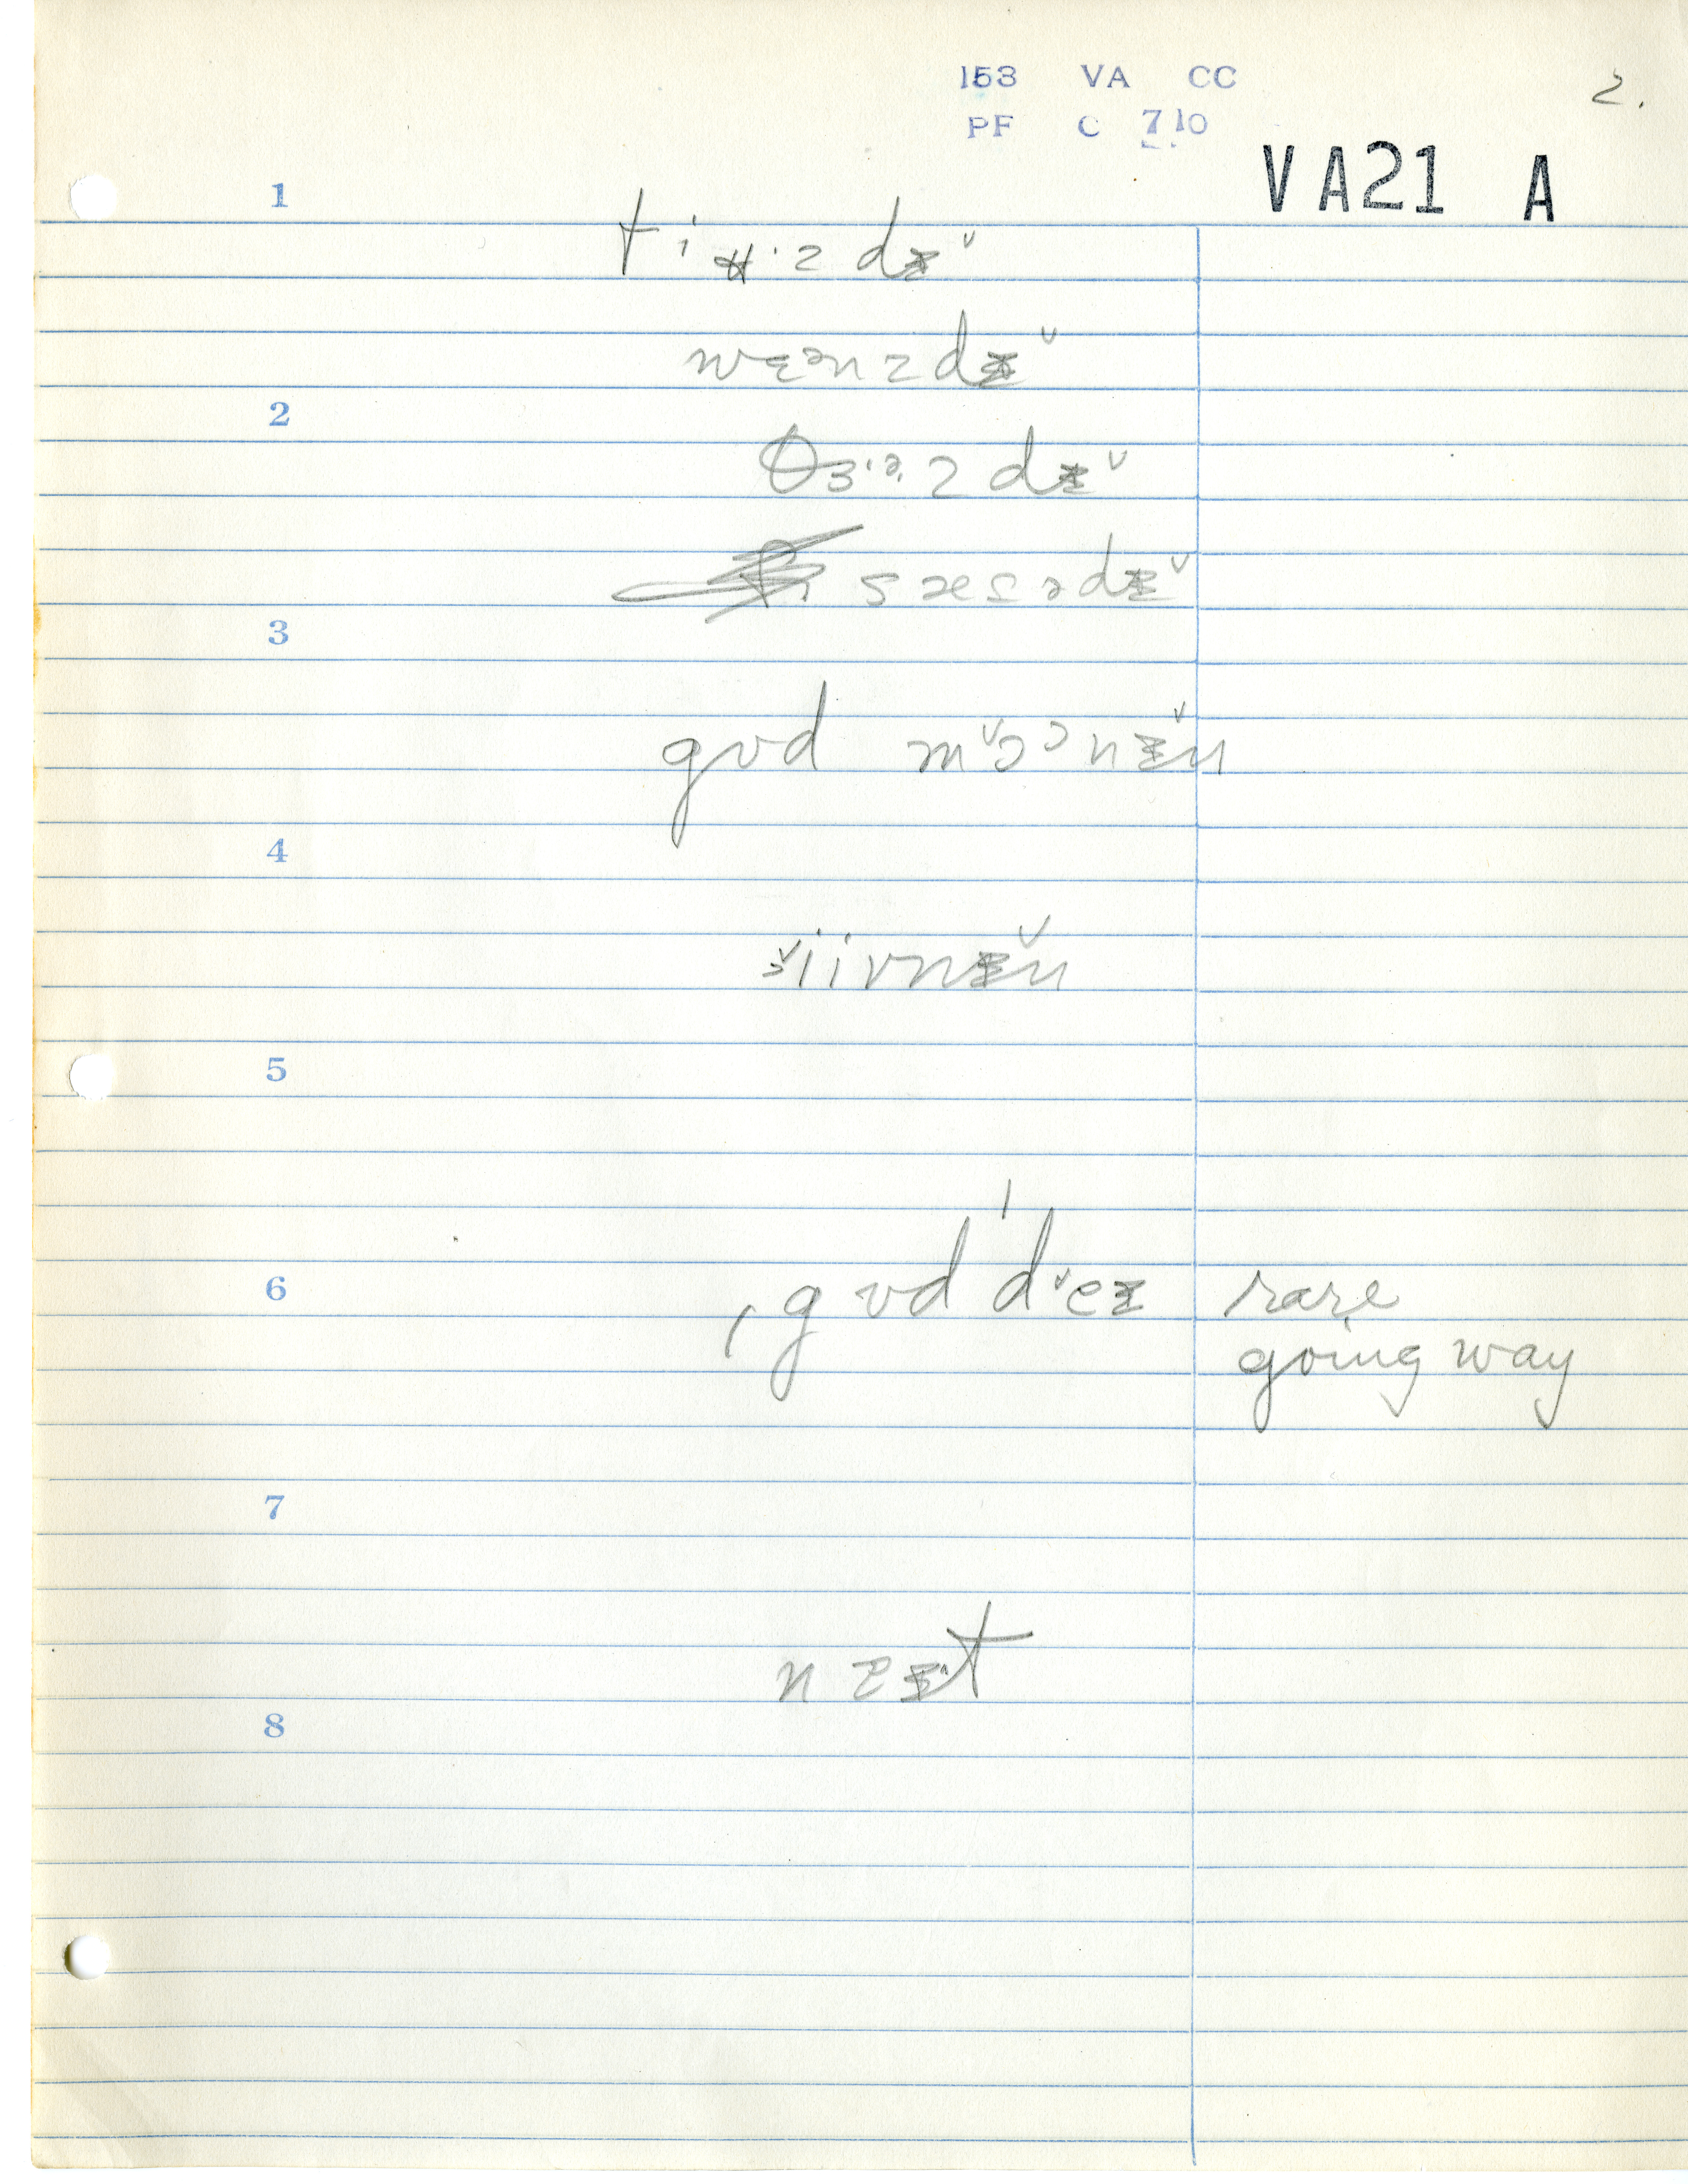 153 VA CC
PF C 710
2.
VA21 A
1
tiʉ·zdɪ̆
wɛənzdɪ̆
2
θɜ·ɚzdɪ̆
sæsədɪ̆
3
gʊd mɔ̆ənɪ̆n
4
iivnɪ̆n
5
6
ˌgʊd ˈdˇeɪ rare
going way
7
nɛɪt
8